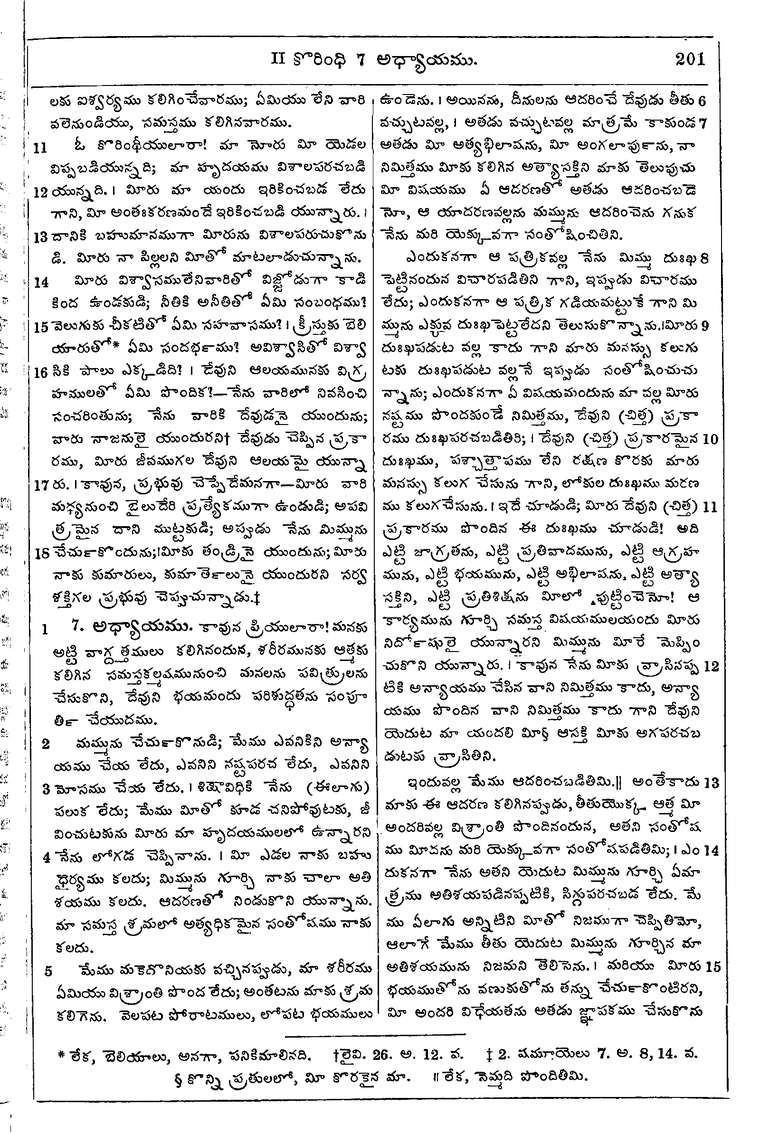 II కొరింథి 7 అధ్యాయము. 201
లకు ఐశ్వర్యము కలిగించేవారము; ఏమియు లేని వారి
వలెనుండియు, సమస్తము కలిగినవారము.
11 ఓ కొరింథీయులారా! మా నోరు మీ యెడల
విప్పబడియున్నది; మా హృదయము విశాలపరచబడి
12 యున్నది. । మీరు మా యందు ఇరికించబడ లేదు
గాని, మీ అంతఃకరణమందే ఇరికించబడి యున్నారు. ।
13 దానికి బహుమానముగా మీరును విశాలపరుచుకొను
డి. మీరు నా పిల్లలని మీతో మాటలాడుచున్నాను.
14 మీరు విశ్వాసములేనివారితో విజ్జోడుగా కాడి
కింద ఉండకుడి; నీతికి అనీతితో ఏమి సంబంధము?
15 వెలుగుకు చీకటితో ఏమి సహవాసము? । క్రీస్తుకు బెలి
యారుతో* ఏమి సందర్భము? అవిశ్వాసితో విశ్వా
16 సికి పాలు ఎక్కడిది? । దేవుని ఆలయమునకు విగ్ర
హములతో ఏమి పొందిక?—నేను వారిలో నివసించి
సంచరింతును; నేను వారికి దేవుడనై యుందును;
వారు నాజనులై యుందురని† దేవుడు చెప్పిన ప్రకా
రము, మీరు జీవముగల దేవుని ఆలయమై యున్నా
17 రు. । కావున, ప్రభువు చెప్పేదేమనగా—మీరు వారి
మధ్యనుంచి బైలుదేరి ప్రత్యేకముగా ఉండుడి; అపవి
త్రమైన దాని ముట్టకుడి; అప్పుడు నేను మిమ్మును
18 చేర్చుకొందును;।మీకు తండ్రినై యుందును; మీరు
నాకు కుమారులు, కుమార్తెలునై యుందురని సర్వ
శక్తిగల ప్రభువు చెప్పుచున్నాడు.‡
1 7. అధ్యాయము. కావున ప్రియులారా! మనకు
అట్టి వాగ్దత్తములు కలిగినందున, శరీరమునకు ఆత్మకు
కలిగిన సమస్తకల్మషమునుంచి మనలను పవిత్రులను
చేసుకొని, దేవుని భయమందు పరిశుద్ధతను సంపూ
ర్తి చేయుదము.
2 మమ్మును చేర్చుకొనుడి; మేము ఎవనికిని అన్యా
యము చేయ లేదు, ఎవనిని నష్టపరచ లేదు, ఎవనిని
3 మోసము చేయ లేదు. । శిక్షావిధికి నేను (ఈలాగు)
పలుక లేదు; మేము మీతో కూడ చనిపోవుటకు, జీ
వించుటకును మీరు మా హృదయములలో ఉన్నారని
4 నేను లోగడ చెప్పినాను. । మీ ఎడల నాకు బహు
ధైర్యము కలదు; మిమ్మును గూర్చి నాకు చాలా అతి
శయము కలదు. ఆదరణతో నిండుకొని యున్నాను.
మా సమస్త శ్రమలో అత్యధికమైన సంతోషము నాకు
కలదు.
5 మేము మకెదొనియకు వచ్చినప్పుడు, మా శరీరము
ఏమియు విశ్రాంతి పొంద లేదు; అంతటను మాకు శ్రమ
కలిగెను. వెలపట పోరాటములు, లోపట భయములు
ఉండెను. । అయినను, దీనులను ఆదరించే దేవుడు తీతు 6
వచ్చుటవల్ల, । అతడు వచ్చుటవల్ల మాత్రమే కాకుండ 7
అతడు మీ అత్యభిలాషను, మీ అంగలార్పును, నా
నిమిత్తము మీకు కలిగిన అత్యాసక్తిని మాకు తెలుపుచు
మీ విషయము ఏ ఆదరణతో అతడు ఆదరించబడె
నో, ఆ యాదరణవల్లను మమ్మును ఆదరించెను గనుక
నేను మరి యెక్కువగా సంతోషించితిని.
ఎందుకనగా ఆ పత్రికవల్ల నేను మిమ్ము దుఃఖ 8
పెట్టినందున విచారపడితిని గాని, ఇప్పుడు విచారము
లేదు; ఎందుకనగా ఆ పత్రిక గడియమట్టుకే గాని మి
మ్మును ఎక్కువ దుఃఖపెట్టలేదని తెలుసుకొన్నాను.।మీరు 9
దుఃఖపడుట వల్ల కాదు గాని మారు మనస్సు కలుగు
టకు దుఃఖపడుట వల్లనే ఇప్పుడు సంతోషించుచు
న్నాను; ఎందుకనగా ఏ విషయమందును మా వల్ల మీరు
నష్టము పొందకుండే నిమిత్తము, దేవుని (చిత్త) ప్రకా
రము దుఃఖపరచబడితిరి; । దేవుని (చిత్త) ప్రకారమైన 10
దుఃఖము, పశ్చాత్తాపము లేని రక్షణ కొరకు మారు
మనస్సు కలుగ చేసును గాని, లోకుల దుఃఖము మరణ
ము కలుగచేసును. । ఇదే చూడుడి; మీరు దేవుని (చిత్త) 11
ప్రకారము పొందిన ఈ దుఃఖము చూడుడి! అది
ఎట్టి జాగ్రతను, ఎట్టి ప్రతివాదమును, ఎట్టి ఆగ్రహ
మును, ఎట్టి భయమును, ఎట్టి అభిలాషను, ఎట్టి అత్యా
సక్తిని, ఎట్టి ప్రతిశిక్షను మీలో పుట్టించెనో! ఆ
కార్యమును గూర్చి సమస్త విషయములయందు మీరు
నిర్దోషులై యున్నారని మిమ్మును మీరే మెప్పిం
చుకొని యున్నారు. । కావున నేను మీకు వ్రాసినప్ప 12
టికి అన్యాయము చేసిన వాని నిమిత్తము కాదు, అన్యా
యము పొందిన వాని నిమిత్తము కాదు గాని దేవుని
యెదుట మా యందలి మీ§ ఆసక్తి మీకు అగపరచబ
డుటకు వ్రాసితిని.
ఇందువల్ల మేము ఆదరించబడితిమి.॥ అంతేకాదు 13
మాకు ఈ ఆదరణ కలిగినప్పుడు, తీతుయొక్క ఆత్మ మీ
అందరివల్ల విశ్రాంతి పొందినందున, అతని సంతోష
ము మీదను మరి యెక్కువగా సంతోషపడితిమి; । ఎం 14
దుకనగా నేను అతని యెదుట మిమ్మును గూర్చి ఏమా
త్రము అతిశయపడినప్పటికి, సిగ్గుపరచబడ లేదు. మే
ము ఏలాగు అన్నిటిని మీతో నిజముగా చెప్పితిమో,
ఆలాగే మేము తీతు యెదుట మిమ్మును గూర్చిన మా
అతిశయమును నిజమని తెలిసెను. । మరియు మీరు 15
భయముతోను వణుకుతోను తన్ను చేర్చుకొంటిరని,
మీ అందరి విధేయతను అతడు జ్ఞాపకము చేసుకొను
* లేక, బెలియాలు, అనగా, పనికిమాలినది. †లైవి. 26. అ. 12. వ. ‡ 2. షమూయెలు 7. అ. 8, 14. వ.
§ కొన్ని ప్రతులలో, మీ కొరకైన మా. ॥ లేక, నెమ్మది పొందితిమి.